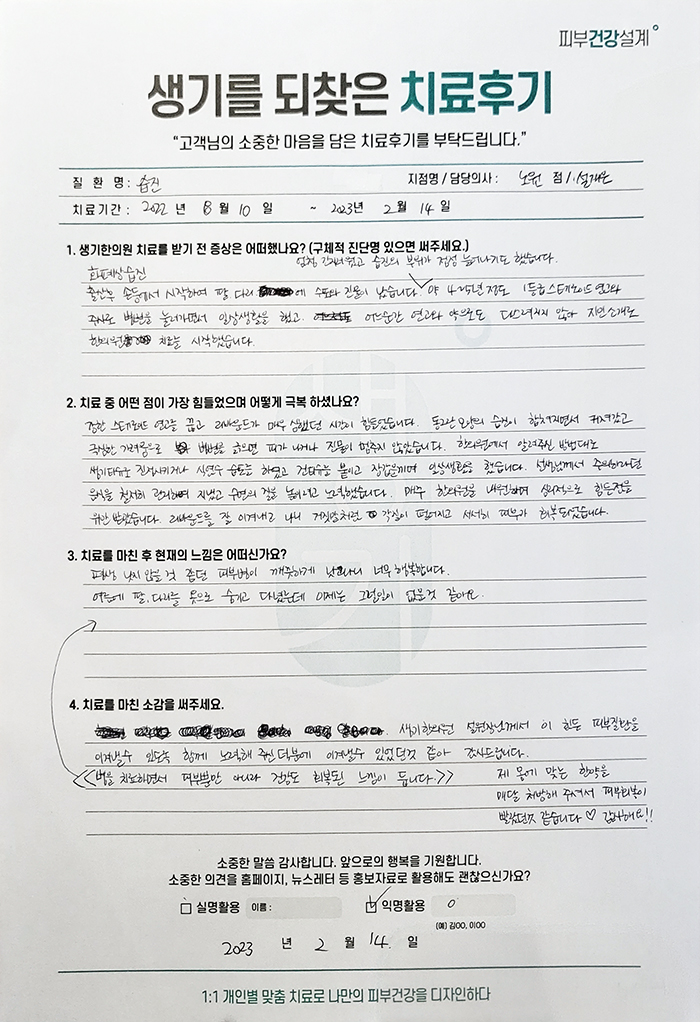 피부건강설계
생기를 되찾은 치료후기
“고객님의 소중한 마음을 담은 치료후기를 부탁드립니다.”
질 환 명 : 습진 지점명 / 담당의사 : 노원 점 / 설재은
치료기간 : 2022 년 8 월 10 일 ~ 2023년 2 월 14 일
1. 생기한의원 치료를 받기 전 증상은 어떠했나요? (구체적 진단명 있으면 써주세요.)
엄청 간지러웠고 습진의 부위가 점점 늘어나기도 했습니다.
화폐상습진
출산후 손등에서 시작하여 팔 다리 에 수포와 진물이 났습니다. 약 4~5년 정도 1등급 스테로이드 연고와
주사로 병변을 눌러가면서 일상생활을 했고. 어느순간 연고와 약으로도 다스려지지 않아 지인소개로
한의원 치료를 시작했습니다.
2. 치료 중 어떤 점이 가장 힘들었으며 어떻게 극복 하셨나요?
강한 스테로이드 연고를 끊고 리바운드가 매우 심했던 시간이 힘들었습니다. 동그란 모양의 습진이 합쳐지면서 커져갔고
극심한 가려움으로 병변을 긁으면 피가 나거나 진물이 멈추지 않았습니다. 한의원에서 알려주신 방법대로
쌩기타올로 진정시키거나 식염수 습포를 하였고 건타올을 붙이고 장갑을끼며 일상생활을 했습니다. 선생님께서 주의하라던
음식을 철저히 관리하며 지냈고 수면의 질을 높이려고 노력했습니다. 매주 한의원을 내원하며 심리적으로 힘든점을
위안 받았습니다. 리바운드를 잘 이겨내고 나니 거짓말처럼 각질이 떨어지고 서서히 피부가 회복되었습니다.
3. 치료를 마친 후 현재의 느낌은 어떠신가요?
평생 낫지 않을것 같던 피부병이 깨끗하게 낫다니 너무 행복합니다.
여름에 팔, 다리를 옷으로 숨기고 다녔는데 이제는 그럴일이 없을것 같아요.
4. 치료를 마친 소감을 써주세요.
생기한의원 설원장님께서 이 힘든 피부질환을
이겨낼수 있도록 함께 노력해 주신 덕분에 이겨낼수 있었던것 같아 감사드립니다.
<<병을 치료하면서 피부뿐만 아니라 건강도 회복된 느낌이 듭니다.>> 제 몸에 맞는 한약을
매달 처방해 주셔서 피부회복이
빨랐던것 같습니다 ♡ 감사해요!!
소중한 말씀 감사합니다. 앞으로의 행복을 기원합니다.
소중한 의견을 홈페이지, 뉴스레터 등 홍보자료로 활용해도 괜찮으신가요?
□ 실명활용 이름 : ☑ 익명활용 0
(예) 김OO, 이OO
2023 년 2 월 14. 일
1:1 개인별 맞춤 치료로 나만의 피부건강을 디자인하다